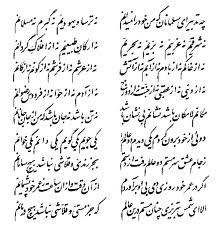 چه تدبیر ای مسلمانان که من خود را نمیدانم نه ترسا و یهودیم نه گبرم نه مسلمانم
نه شرقیم نه غربیم نه بریم نه بحریم نه ارکان طبیعیم نه از افلاک گردانم
نه از خاکم نه از بادم نه از آبم نه از آتش نه از عرشم نه از فرشم نه از کونم نه از کانم
نه از دنیی نه از عقبی نه از جنت نه از دوزخ نه از آدم نه از حوا نه از فردوس رضوانم
مکانم لامکان باشد نشانم بی نشان باشد نه تن باشد نه جان باشد که من از جان جانانم
دویی را چون برون کردم دو عالم را یکی دیدم یکی جویم یکی گویم یکی دانم یکی خوانم
ز جام عشق سرمستم دو عالم رفت از دستم بجز رندی و قلاشی نباشد هیچ سامانم
اگر در عمر خود روزی دمی بی او برآوردم از آن وقت و از آن ساعت ز عمر خود پشیمانم
الا ای شمس تبریزی چنان مستم درین عالم که جز مستی و قلاشی نباشد هیچ درمانم